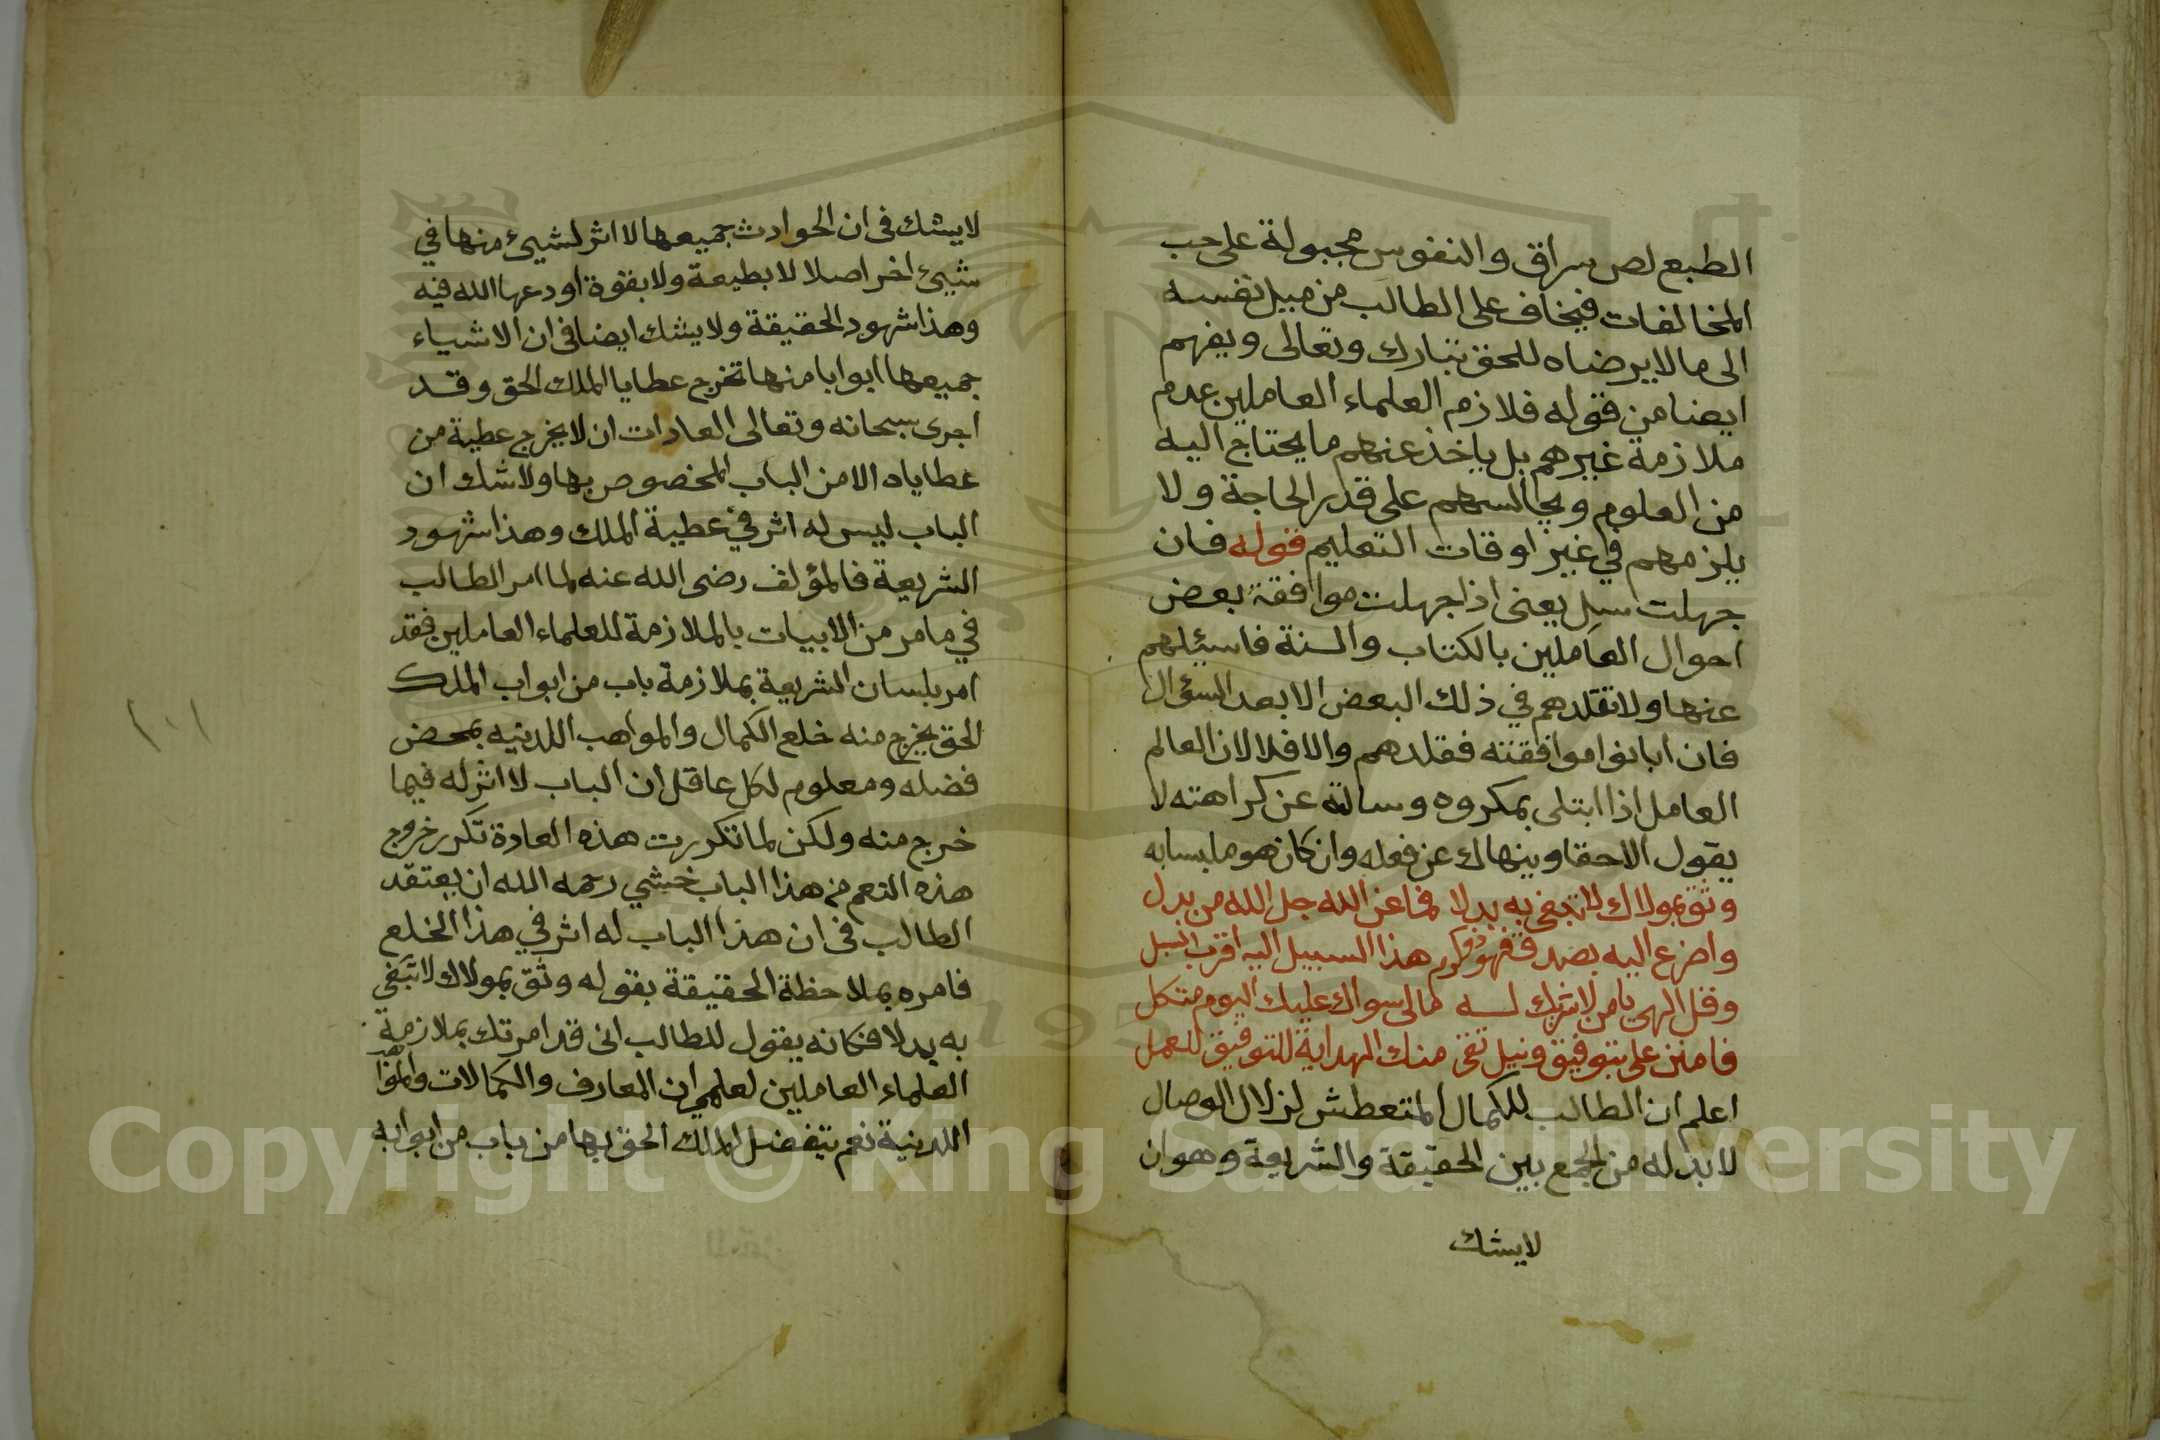 الطبع لص سراق والنفوس مجبولة على حب
المخالفات فيخاف على الطالب من ميل نفسه
الى مالا يرضاه للحق تبارك وتعالى ويفهم
ايضا من قوله فلازم العلماء العاملين عدم
ملازمة غيرهم بل ياخذ عنهم ما يحتاج اليه
من العلوم ويجالسهم على قدر الحاجة ولا
يلزمهم في غير اوقات التعليم قوله فان
جهلت سيل يعنى اذا جهلت موافقة بعض
احوال العاملين بالكتاب والسنة فاسيئلهم
عنها ولا تقلدهم في ذلك البعض الا بعد السؤال
فان ابانوا موافقته فقلدهم والا فلا لان العالم
العامل اذا ابتلى بمكروه وسالته عن كراهته لا
يقول الاحقا وينهاك عن فعله وان كان هو ملبسا به
وثق بمولاك لا تبغى به بدلا فما عن الله جل الله من بدل
واضرع اليه بصدق فهو ذو كرم هذا السبيل اليه اقرب السبل
وقل الهي يا من لا شريك له مالى سواك عليك اليوم متكل
فامنن على بتوفيق ونيل تقى منك الهداية للتوفيق للعمل
اعلم ان الطالب للكمال المتعطش لزلال الوصال
لابد له من الجمع بين الحقيقة والشريعة وهو ان
لايشك
لايشك فى ان الحوادث جميعها لا اثر لشيئ منها في
شيئ اخر اصلا لا بطبيعة ولا بقوة اودعها الله فيه
وهذا شهود الحقيقة ولا يشك ايضا فى ان الاشياء
جميعها ابوابا منها تخرج عطايا الملك الحق وقد
اجرى سبحانه وتعالى العادات ان لا يخرج عطية من
عطاياه الا من الباب المخصوص بها ولا شك ان
الباب ليس له اثر في عطية الملك وهذا شهود
الشريعة فالمؤلف رضى الله عنه لما امر الطالب
في ما مر من الابيات بالملازمة للعلماء العاملين فقد
امر بلسان الشريعة بملازمة باب من ابواب الملك
الحق يخرج منه خلع الكمال والمواهب اللدنيه بمحض
فضله ومعلوم لكل عاقل ان الباب لا اثر له فيما
خرج منه ولكن لما تكررت هذه العادة تكرر خروج
هذه النعم من هذا الباب خشي رحمه الله ان يعتقد
الطالب فى ان هذا الباب له اثر في هذا الخلع
فامره بملاحظة الحقيقة بقوله وثق بمولاك لا تبغى
به بدلا فكانه يقول للطالب انى قد امرتك بملازمة
العلماء العاملين لعلمي ان المعارف والكمالات والمواهب
اللدنية نعم يتفضل الملك الحق بها من باب من ابوابه
١٠١
Copyright © King Saud University